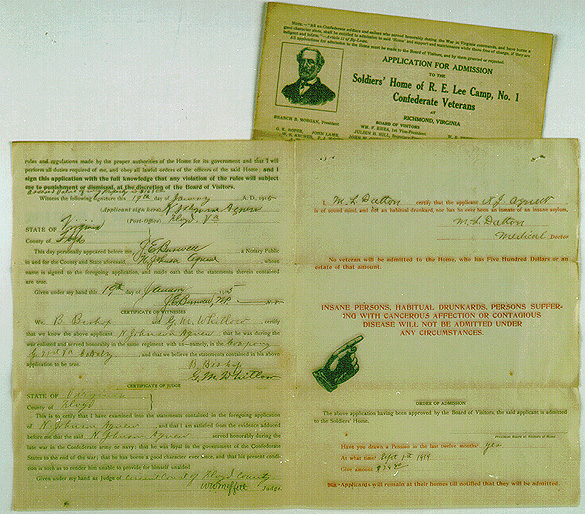 NOTE.—"All ex-Confederate soldiers and sailors who served honorably during the War in Virginia commands, and have borne a
good character since, shall be entitled to admission to said Home and support and maintenance while there free of charge, if they are
APPLICATION FOR ADMISSION
TO THE
Soldiers' Home of R. E. Lee Camp, No. 1
Confederate Veterans
AT
RICHMOND, VIRGINIA
BOARD OF VISITORS
rules and regulations made by the proper authorities of the Home for its government and that I will
perform all duties required of me, and obey all lawful orders of the officers of the said Home; and I
sign this application with the full knowledge that any violation of the rules will subject
me to punishment or dismissal, at the discretion of the Board of Visitors.
Witness the following signature this 19th day of January A. D., 1915
Applicant sign here K Johnson Agnew
(Post-Office) Floyd Va
STATE OF Virginia
County of Floyd
This day personally appeared before me a Notary Public
in and for the County and State aforesaid, K Johnson Agnew whose
name is signed to the foregoing application, and made oath that the statements therein contained
are true.
Given under my hand this 19th day of January 1915
N. P.
CERTIFICATE OF WITNESSES
We B. Bishop & G. M. Whitlow certify
that we know the above applicant K Johnson Agnew, that he was during the
war enlisted and served honorably in the same regiment with us—namely, in the Company
G 21st Va Cavalry, and that we believe the statements contained in his above
application to be true.
B. Bishop
G. M. Whitlow
CERTIFICATE OF JUDGE
STATE OF Virginia
County of Floyd
This is to certify that I have examined into the statements contained in the foregoing application
of K Johnson Agnew, and that I am satisfied from the evidence adduced
before me that the said K Johnson Agnew served honorably during the
late war in the Confederate army or navy; that he was loyal to the government of the Confederate
States to the end of the war; that he has borne a good character ever since, and that his present condi-
tion is such as to render him unable to provide for himself unaided.
Given under my hand as Judge of Circuit Court of Floyd County
Judge.
I, M. L. Dalton certify that the applicant K J Agnew
is of sound mind, and not an habitual drunkard, nor has he ever been an inmate of an insane asylum.
M. L. Dalton
Medical Doctor
No veteran will be admitted to the Home, who has Five Hundred Dollars or an
estate of that amount.
INSANE PERSONS, HABITUAL DRUNKARDS, PERSONS SUFFER-
ING WITH CANCEROUS AFFECTION OR CONTAGIOUS
DISEASE WILL NOT BE ADMITTED UNDER
ANY CIRCUMSTANCES.
ORDER OF ADMISSION
The above application having been approved by the Board of Visitors, the said applicant is admitted
to the Soldiers' Home.
President Board of Visitors of Home
Have you drawn a Pension in the last twelve months? Yes
At what time? Sept 1st 1914
Give amount
Applicants will remain at their homes till notified that they will be admitted.